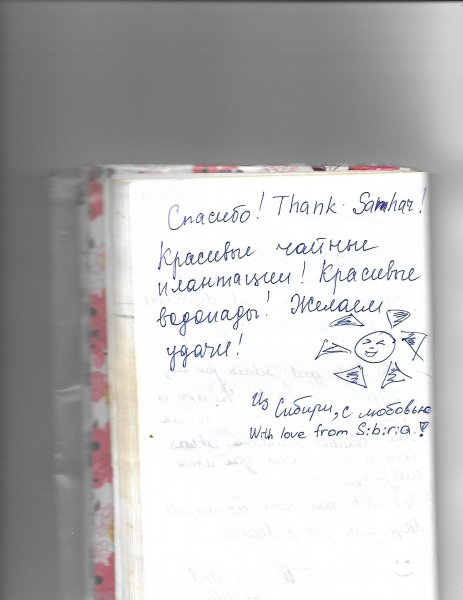 Спасибо! Thank Samhar!
Красивые чайные
плантации! Красивые
водопады! Желаем
удачи!
Из Сибири, с любовью
With love from Sibiria!